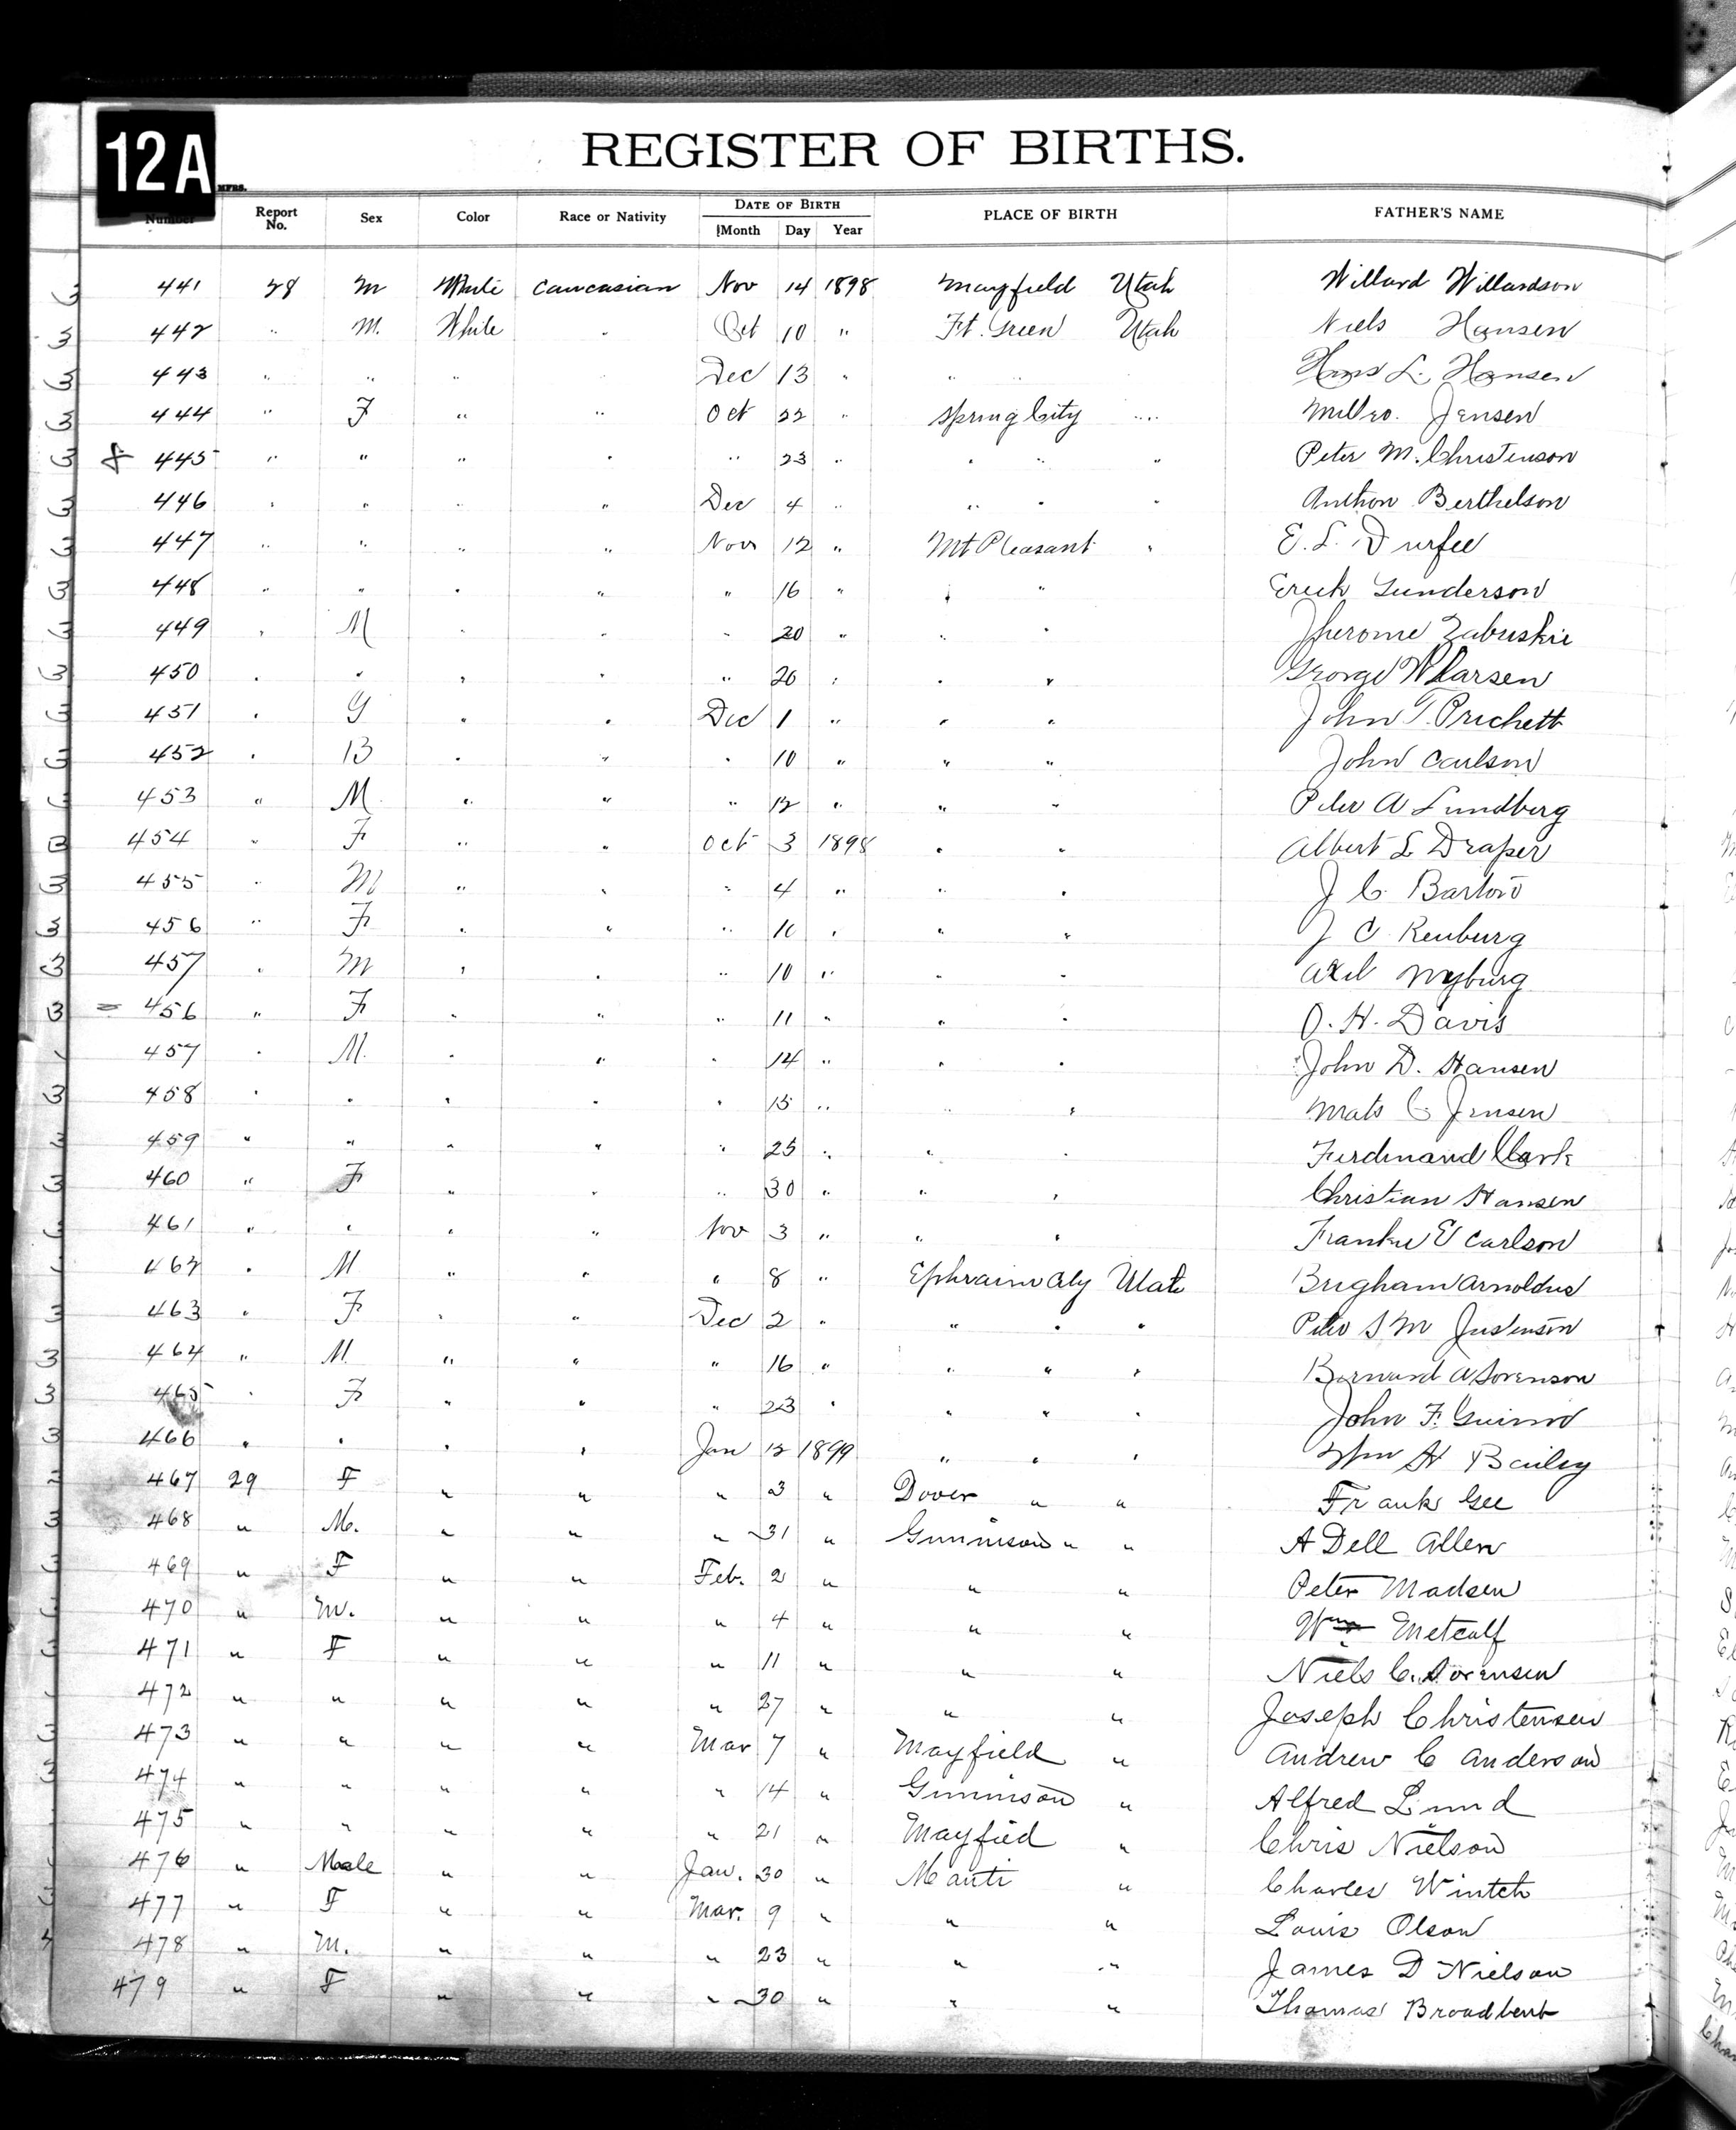 12A
MFRS.
REGISTER OF BIRTHS.
Number Report No. Sex Color Race or Nativity DATE OF BIRTH Month Day Year PLACE OF BIRTH FATHER'S NAME
441 28 M White Caucasian Nov 14 1898 Mayfield Utah Willard Willardson
442 " M. White " Oct 10 " Ft. Green Utah Niels Hansen
443 " " " Dec 13 " " " Hans L. Hansen
444 " F " " Oct 22 " Spring City " Jensen
445 " " " " " 23 " " " " Peter M. Christenson
446 " " " " Dec 4 " " " " Anthon Berthelson
447 " " " " Nov 12 " Mt Pleasant " E. L. Durfee
448 " " " " " 16 " " " Erick Gunderson
449 " M " " " 20 " " " Jherome Zabriskie
450 " " " " " 26 " " " George W Larsen
451 " G " " Dec 1 " " " John T. Prichett
452 " B " " " 10 " " " John Carlson
453 " M " " " 12 " " " Peter A Lundberg
454 " F " " Oct 3 1898 " " Albert L Draper
455 " M " " " 4 " " " J C Barton
456 " F " " " 10 " " " J C Renburg
457 " M " " " 10 " " " Axel Nyburg
= 456 " F " " " 11 " " " O. H. Davis
457 " M. " " " 14 " " " John D. Hansen
458 " " " " " 15 " " " Mats C Jensen
459 " " " " " 25 " " " Ferdinand Clark
460 " F " " " 30 " " " Christian Hansen
461 " " " " Nov 3 " " " Frank E Carlson
462 " M " " " 8 " Ephraim City Utah Brigham Arnoldus
463 " F " " Dec 2 " " " " Peter S M Justensen
464 " M. " " " 16 " " " " Bernard A Sorenson
465 " F " " " 23 " " " " John F.
466 " " " " Jan 12 1899 " " " Wm H Bailey
467 29 F " " " 3 " Dover " " Frank Gee
468 " M. " " " 31 " Gunnison " " A Dell Allen
469 " F " " Feb. 2 " " " Peter Madsen
470 " M. " " " 4 " " " Wm Metcalf
471 " F " " " 11 " " " Niels C. Sorensen
472 " " " " " 27 " " " Joseph Christensen
473 " " " " Mar 7 " Mayfield " Andrew C Anderson
474 " " " " " 14 " Gunnison " Alfred Lund
475 " " " " " 21 " Mayfied " Chris Nielson
476 " Male " " Jan. 30 " Manti " Charles Wintch
477 " F " " Mar. 9 " " " Louis Olson
478 " M. " " " 23 " " " James D Nielson
479 " F " " " 30 " " " Thomas Broadbent